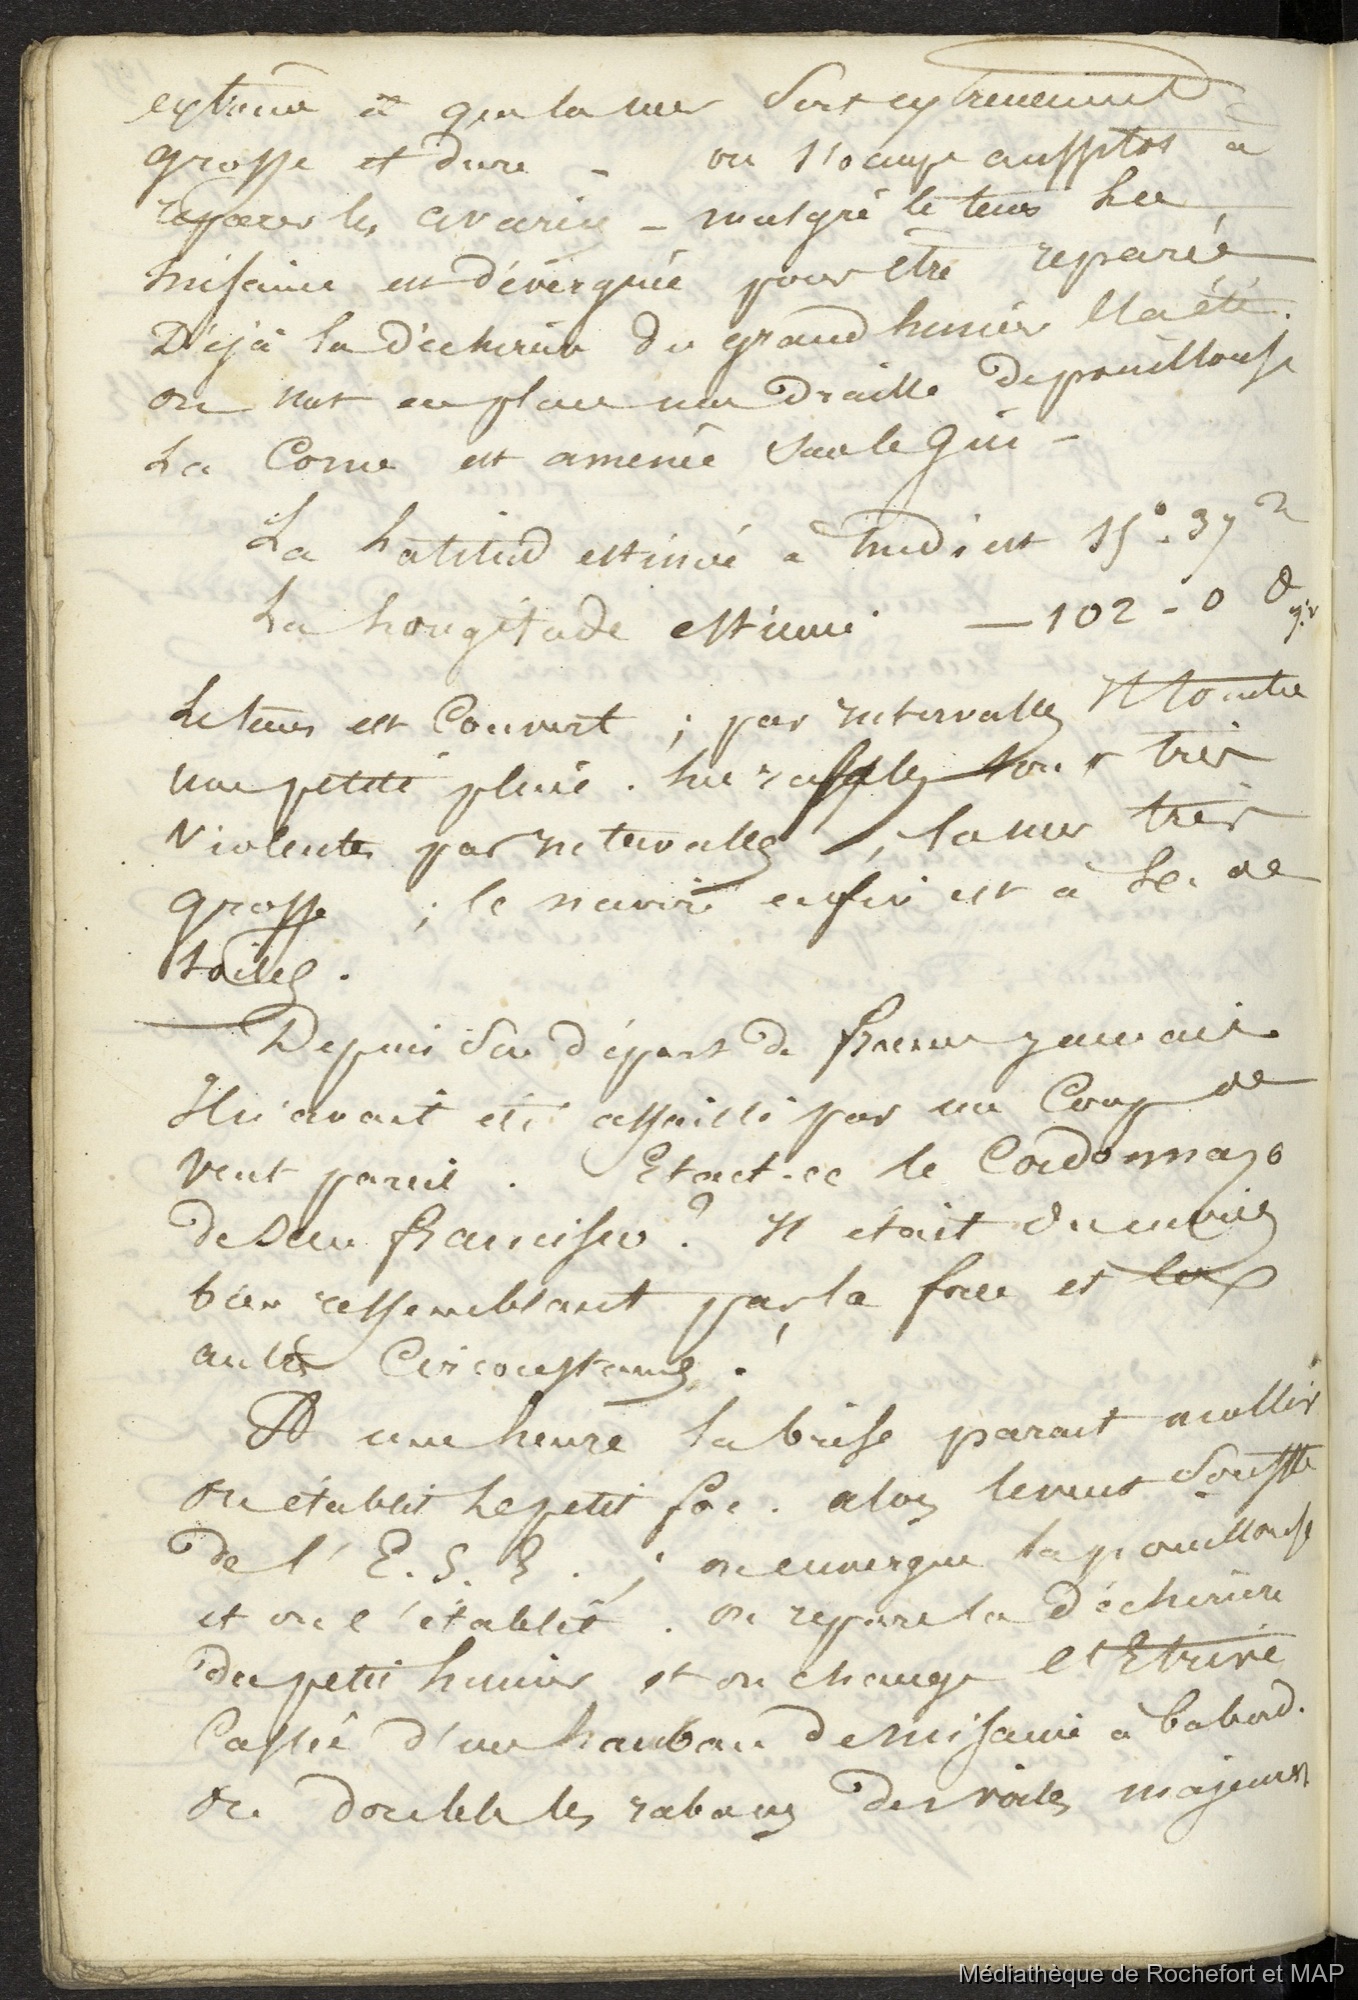 extrême et que la mer soit extremement
grosse et dure - on s'ocupe aussitot à
reparer les avaries - malgré le tems La
misaine est dévérguée pour être reparée
Déjà la déchirure du grand hunier l'a été.
on met en place une draille de pouillouse
La Corne est amenée sur le Gui -
La Latitud estimée à midi est 15° - 37' N
La Longitude estimée — 102 - 0 O
Le tems est Couvert ; par intervalles Il tombe
une petite pluie . Les raffales sont très
violentes par intervalles , la mer très
grosse ; le navire enfin est à Sec de
toiles .
Depuis son départ de france jamais
Il n'avait été assailli par un Coup de
vent pareil . Etait-ce le Cordonnazo
de San francisco ? Il était du moins
bien ressemblant par la force et les
autres Circonstances .
A une heure la brise parait mollir
on établit Le petit foc . alors le vent Souffle
de l' E. S. E . ; on envergue la pouillouse
et on l'établit . on repare la déchirure
du petit hunier et on change l'Etrive
Cassée d'un hauban de misaine à babord.
on double les rabans des voiles majeures
Médiathèque de Rochefort et MAP